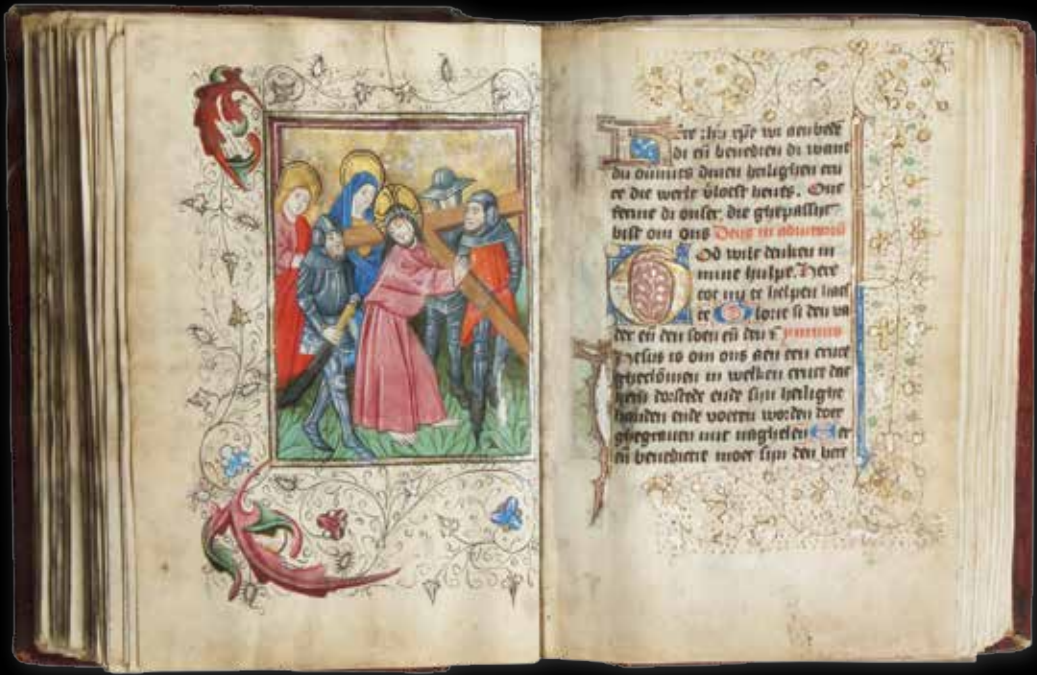 Here ihu xpe wi aenbede
di eñ benedien di want
du oumits dinen heilighen cru
ce die werlt v̄loest heues. Ont
ferme di onser, die ghepassijt
bist om ons Deus in adiutoriū
God wilt denken in
mine hulpe. Here
my te helpen haes
te Glorie si den va
der eñ den soen eñ den
Ihesus is om ons aen een cruce
gheclōmen in welken cruce dat
hem dorstede ende sijn heilighe
handen ende voeten worden doer
ghegrauen mit naghelen Eer
eñ benedictie moet sijn den here